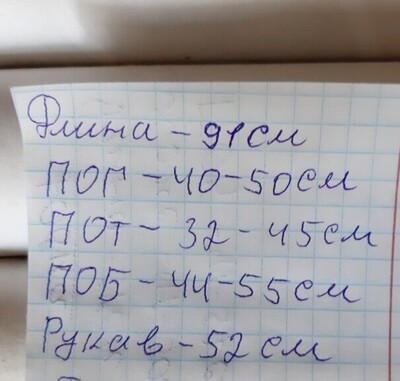 Длина - 91 см
ПОГ - 40-50 см
ПОТ - 32 - 45 см
ПОБ - 44-55 см
Рукав - 52 см